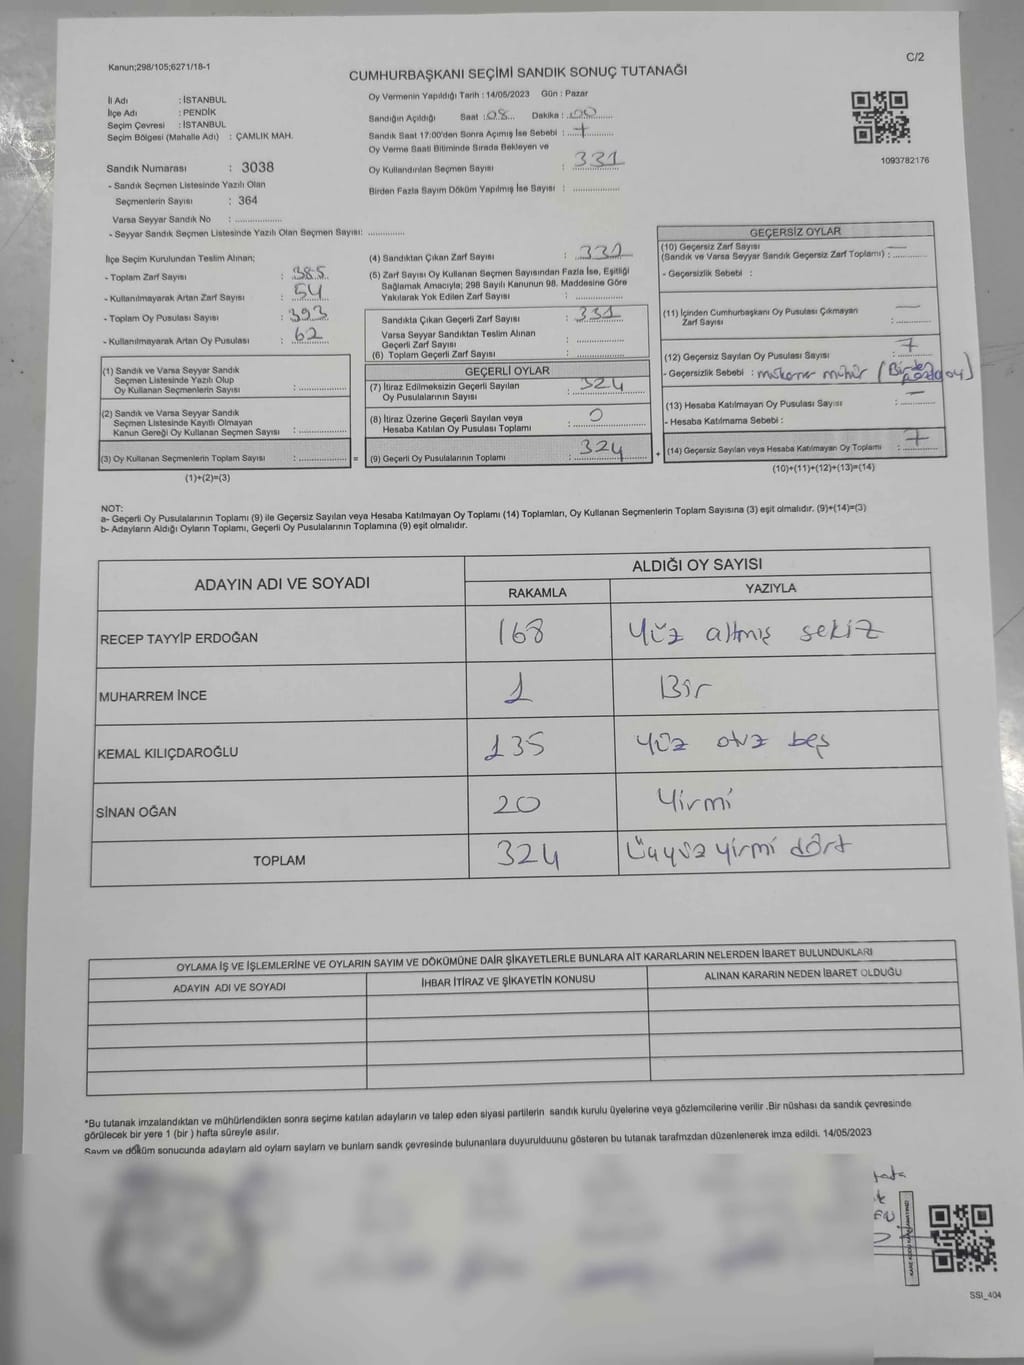 Kanun;298/105;6271/18-1
C/2
CUMHURBAŞKANI SEÇİMİ SANDIK SONUÇ TUTANAĞI
İl Adı : İSTANBUL
İlçe Adı : PENDİK
Seçim Çevresi : İSTANBUL
Seçim Bölgesi (Mahalle Adı) : ÇAMLIK MAH.
Oy Vermenin Yapıldığı Tarih : 14/05/2023 Gün : Pazar
Sandığın Açıldığı Saat : 08 Dakika : 00
Sandık Saat 17:00'den Sonra Açımış İse Sebebi :
Oy Verme Saati Bitiminde Sırada Bekleyen ve
Oy Kullandırılan Seçmen Sayısı : 331
Birden Fazla Sayım Döküm Yapılmış İse Sayısı : ..............
1093782176
Sandık Numarası : 3038
- Sandık Seçmen Listesinde Yazılı Olan
Seçmenlerin Sayısı : 364
Varsa Seyyar Sandık No : ..............
- Seyyar Sandık Seçmen Listesinde Yazılı Olan Seçmen Sayısı: ..............
İlçe Seçim Kurulundan Teslim Alınan;
- Toplam Zarf Sayısı : 385
- Kullanılmayarak Artan Zarf Sayısı : 54
- Toplam Oy Pusulası Sayısı : 393
- Kullanılmayarak Artan Oy Pusulası : 62
(1) Sandık ve Varsa Seyyar Sandık
Seçmen Listesinde Yazılı Olup
Oy Kullanan Seçmenlerin Sayısı : ..............
(2) Sandık ve Varsa Seyyar Sandık
Seçmen Listesinde Kayıtlı Olmayan
Kanun Gereği Oy Kullanan Seçmen Sayısı : ..............
(3) Oy Kullanan Seçmenlerin Toplam Sayısı : .............. =
(1)+(2)=(3)
(4) Sandıktan Çıkan Zarf Sayısı : 331
(5) Zarf Sayısı Oy Kullanan Seçmen Sayısından Fazla İse, Eşitliği
Sağlamak Amacıyla; 298 Sayılı Kanunun 98. Maddesine Göre
Yakılarak Yok Edilen Zarf Sayısı : ..............
Sandıkta Çıkan Geçerli Zarf Sayısı : 331
Varsa Seyyar Sandıktan Teslim Alınan
Geçerli Zarf Sayısı : ..............
(6) Toplam Geçerli Zarf Sayısı : ..............
GEÇERLİ OYLAR
(7) İtiraz Edilmeksizin Geçerli Sayılan
Oy Pusulalarının Sayısı : 324
(8) İtiraz Üzerine Geçerli Sayılan veya
Hesaba Katılan Oy Pusulası Toplamı : 0
(9) Geçerli Oy Pusulalarının Toplamı : 324 +
GEÇERSİZ OYLAR
(10) Geçersiz Zarf Sayısı
(Sandık ve Varsa Seyyar Sandık Geçersiz Zarf Toplamı) : —
- Geçersizlik Sebebi :
(11) İçinden Cumhurbaşkanı Oy Pusulası Çıkmayan
Zarf Sayısı : —
(12) Geçersiz Sayılan Oy Pusulası Sayısı : 7
- Geçersizlik Sebebi : mükerrer mühür (Birden
(13) Hesaba Katılmayan Oy Pusulası Sayısı : —
- Hesaba Katılmama Sebebi :
(14) Geçersiz Sayılan veya Hesaba Katılmayan Oy Toplamı : 7
(10)+(11)+(12)+(13)=(14)
NOT:
a- Geçerli Oy Pusulalarının Toplamı (9) ile Geçersiz Sayılan veya Hesaba Katılmayan Oy Toplamı (14) Toplamları, Oy Kullanan Seçmenlerin Toplam Sayısına (3) eşit olmalıdır. (9)+(14)=(3)
b- Adayların Aldığı Oyların Toplamı, Geçerli Oy Pusulalarının Toplamına (9) eşit olmalıdır.
ADAYIN ADI VE SOYADI
ALDIĞI OY SAYISI
RAKAMLA YAZIYLA
RECEP TAYYİP ERDOĞAN 168 Yüz altmış sekiz
MUHARREM İNCE 1 Bir
KEMAL KILIÇDAROĞLU 135 Yüz otuz beş
SİNAN OĞAN 20 Yirmi
TOPLAM 324 Üçyüz yirmi dört
OYLAMA İŞ VE İŞLEMLERİNE VE OYLARIN SAYIM VE DÖKÜMÜNE DAİR ŞİKAYETLERLE BUNLARA AİT KARARLARIN NELERDEN İBARET BULUNDUKLARI
ADAYIN ADI VE SOYADI İHBAR İTİRAZ VE ŞİKAYETİN KONUSU ALINAN KARARIN NEDEN İBARET OLDUĞU
*Bu tutanak imzalandıktan ve mühürlendikten sonra seçime katılan adayların ve talep eden siyasi partilerin sandık kurulu üyelerine veya gözlemcilerine verilir .Bir nüshası da sandık çevresinde
görülecek bir yere 1 (bir ) hafta süreyle asılır.
Sayım ve döküm sonucunda adayların ald oyların sayların ve bunların sandk çevresinde bulunanlara duyurulduunu gösteren bu tutanak tarafmzdan düzenlenerek imza edildi. 14/05/2023
SSI_404